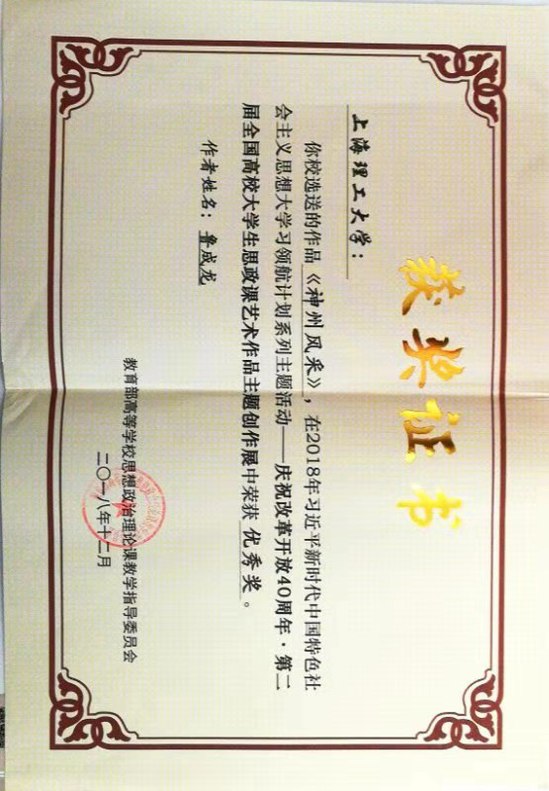 获奖证书
上海理工大学：
你校选送的作品《神州风采》，在2018年习近平新时代中国特色社
会主义思想大学习领航计划系列主题活动——庆祝改革开放40周年·第二
届全国高校大学生思政课艺术作品主题创作展中荣获 优秀奖 。
作者姓名：鲁成龙
教育部高等学校思想政治理论课教学指导委员会
二〇一八年十二月